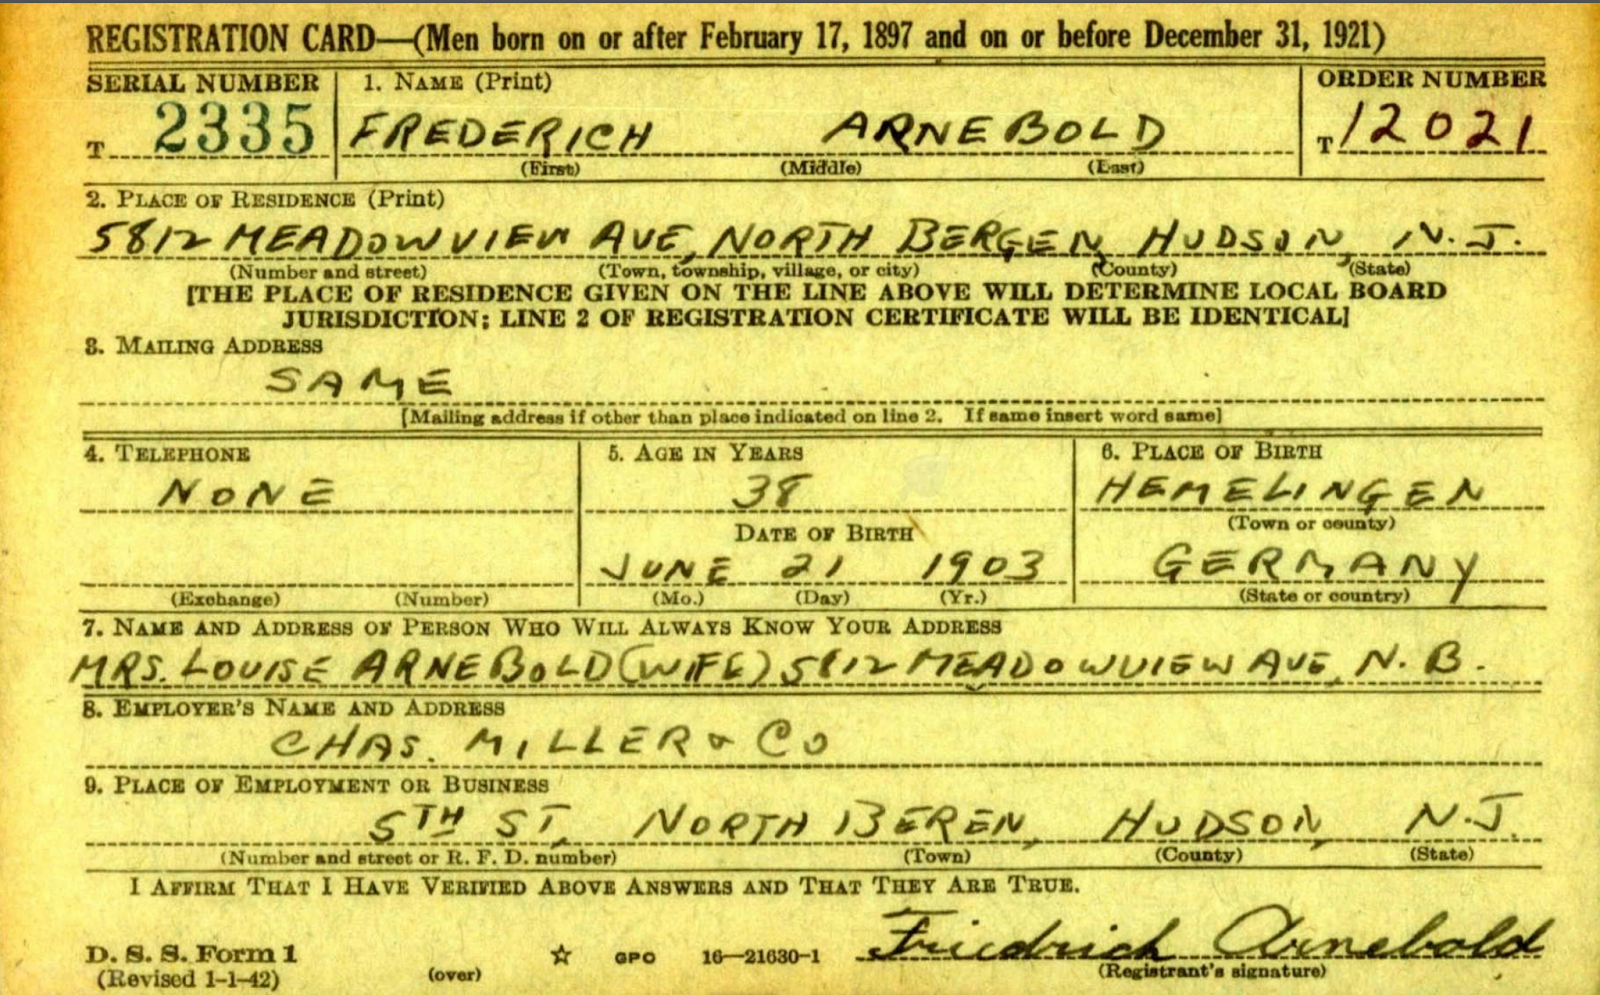 REGISTRATION CARD—(Men born on or after February 17, 1897 and on or before December 31, 1921)
SERIAL NUMBER 1. NAME (Print) ORDER NUMBER
T 2335 FREDERICH ARNEBOLD T 12021
(First) (Middle) (Last)
2. PLACE OF RESIDENCE (Print)
5812 MEADOWVIEW AVE, NORTH BERGEN, HUDSON, N.J.
(Number and street) (Town, township, village, or city) (County) (State)
[THE PLACE OF RESIDENCE GIVEN ON THE LINE ABOVE WILL DETERMINE LOCAL BOARD
JURISDICTION; LINE 2 OF REGISTRATION CERTIFICATE WILL BE IDENTICAL]
3. MAILING ADDRESS
SAME
[Mailing address if other than place indicated on line 2. If same insert word same]
4. TELEPHONE 5. AGE IN YEARS 6. PLACE OF BIRTH
NONE 38 HEMELINGEN
DATE OF BIRTH (Town or county)
JUNE 21 1903 GERMANY
(Exchange) (Number) (Mo.) (Day) (Yr.) (State or country)
7. NAME AND ADDRESS OF PERSON WHO WILL ALWAYS KNOW YOUR ADDRESS
MRS. LOUISE ARNEBOLD (WIFE) 5812 MEADOWVIEW AVE, N. B.
8. EMPLOYER'S NAME AND ADDRESS
CHAS. MILLER & CO
9. PLACE OF EMPLOYMENT OR BUSINESS
5TH ST, NORTH BEREN, HUDSON, N.J.
(Number and street or R. F. D. number) (Town) (County) (State)
I AFFIRM THAT I HAVE VERIFIED ABOVE ANSWERS AND THAT THEY ARE TRUE.
Friedrich Arnebold
D. S. S. Form 1 GPO 16—21630-1
(Revised 1-1-42) (over) (Registrant's signature)